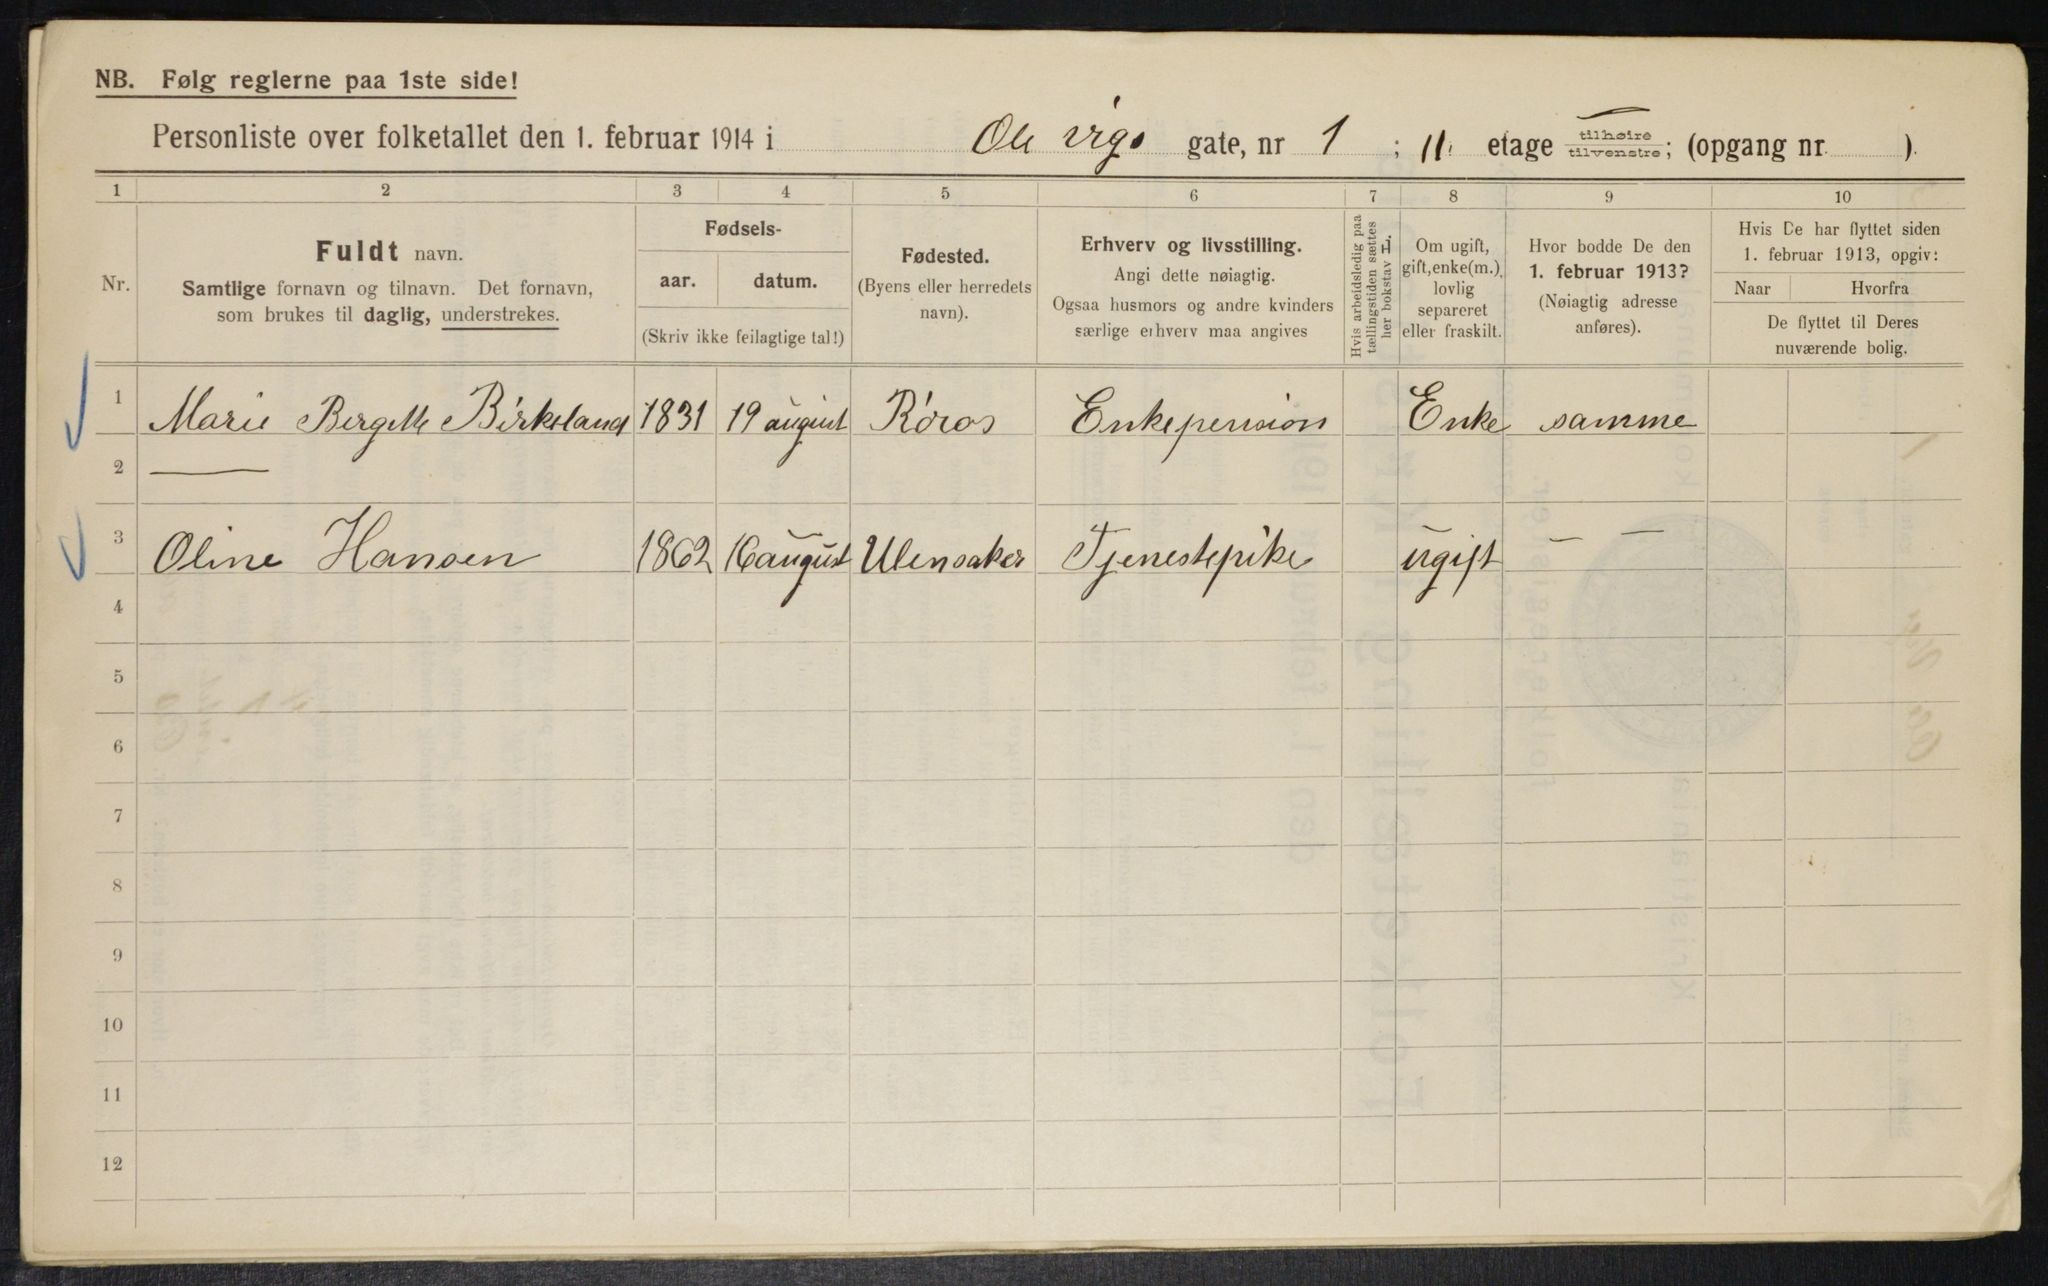 NB. Følg reglerne paa 1ste side!
Personliste over folketallet den 1. februar 1914 i Ole Vigs gate, nr 1; II. etage tilhøire / tilvenstre; (opgang nr. ).
1 2 3 4 5 6 7 8 9 10
Nr.
Fuldt navn.
Samtlige fornavn og tilnavn. Det fornavn,
som brukes til daglig, understrekes.
Fødsels-
aar. datum.
(Skriv ikke feilagtige tal!)
Fødested.
(Byens eller herredets
navn).
Erhverv og livsstilling.
Angi dette nøiagtig.
Ogsaa husmors og andre kvinders
særlige erhverv maa angives
Hvis arbeidsledig paa
tællingstiden sættes
her bokstav L.
Om ugift,
gift, enke(m.),
lovlig
separeret
eller fraskilt.
Hvor bodde De den
1. februar 1913?
(Nøiagtig adresse
anføres).
Hvis De har flyttet siden
1. februar 1913, opgiv:
Naar Hvorfra
De flyttet til Deres
nuværende bolig.
1 Marie Bergitte Birkeland 1831 19 august Röros Enkepension Enke samme
2 —
3 Oline Hansen 1862 16 august Ulensaker Tjenestepike ugift — —
4
5
6
7
8
9
10
11
12